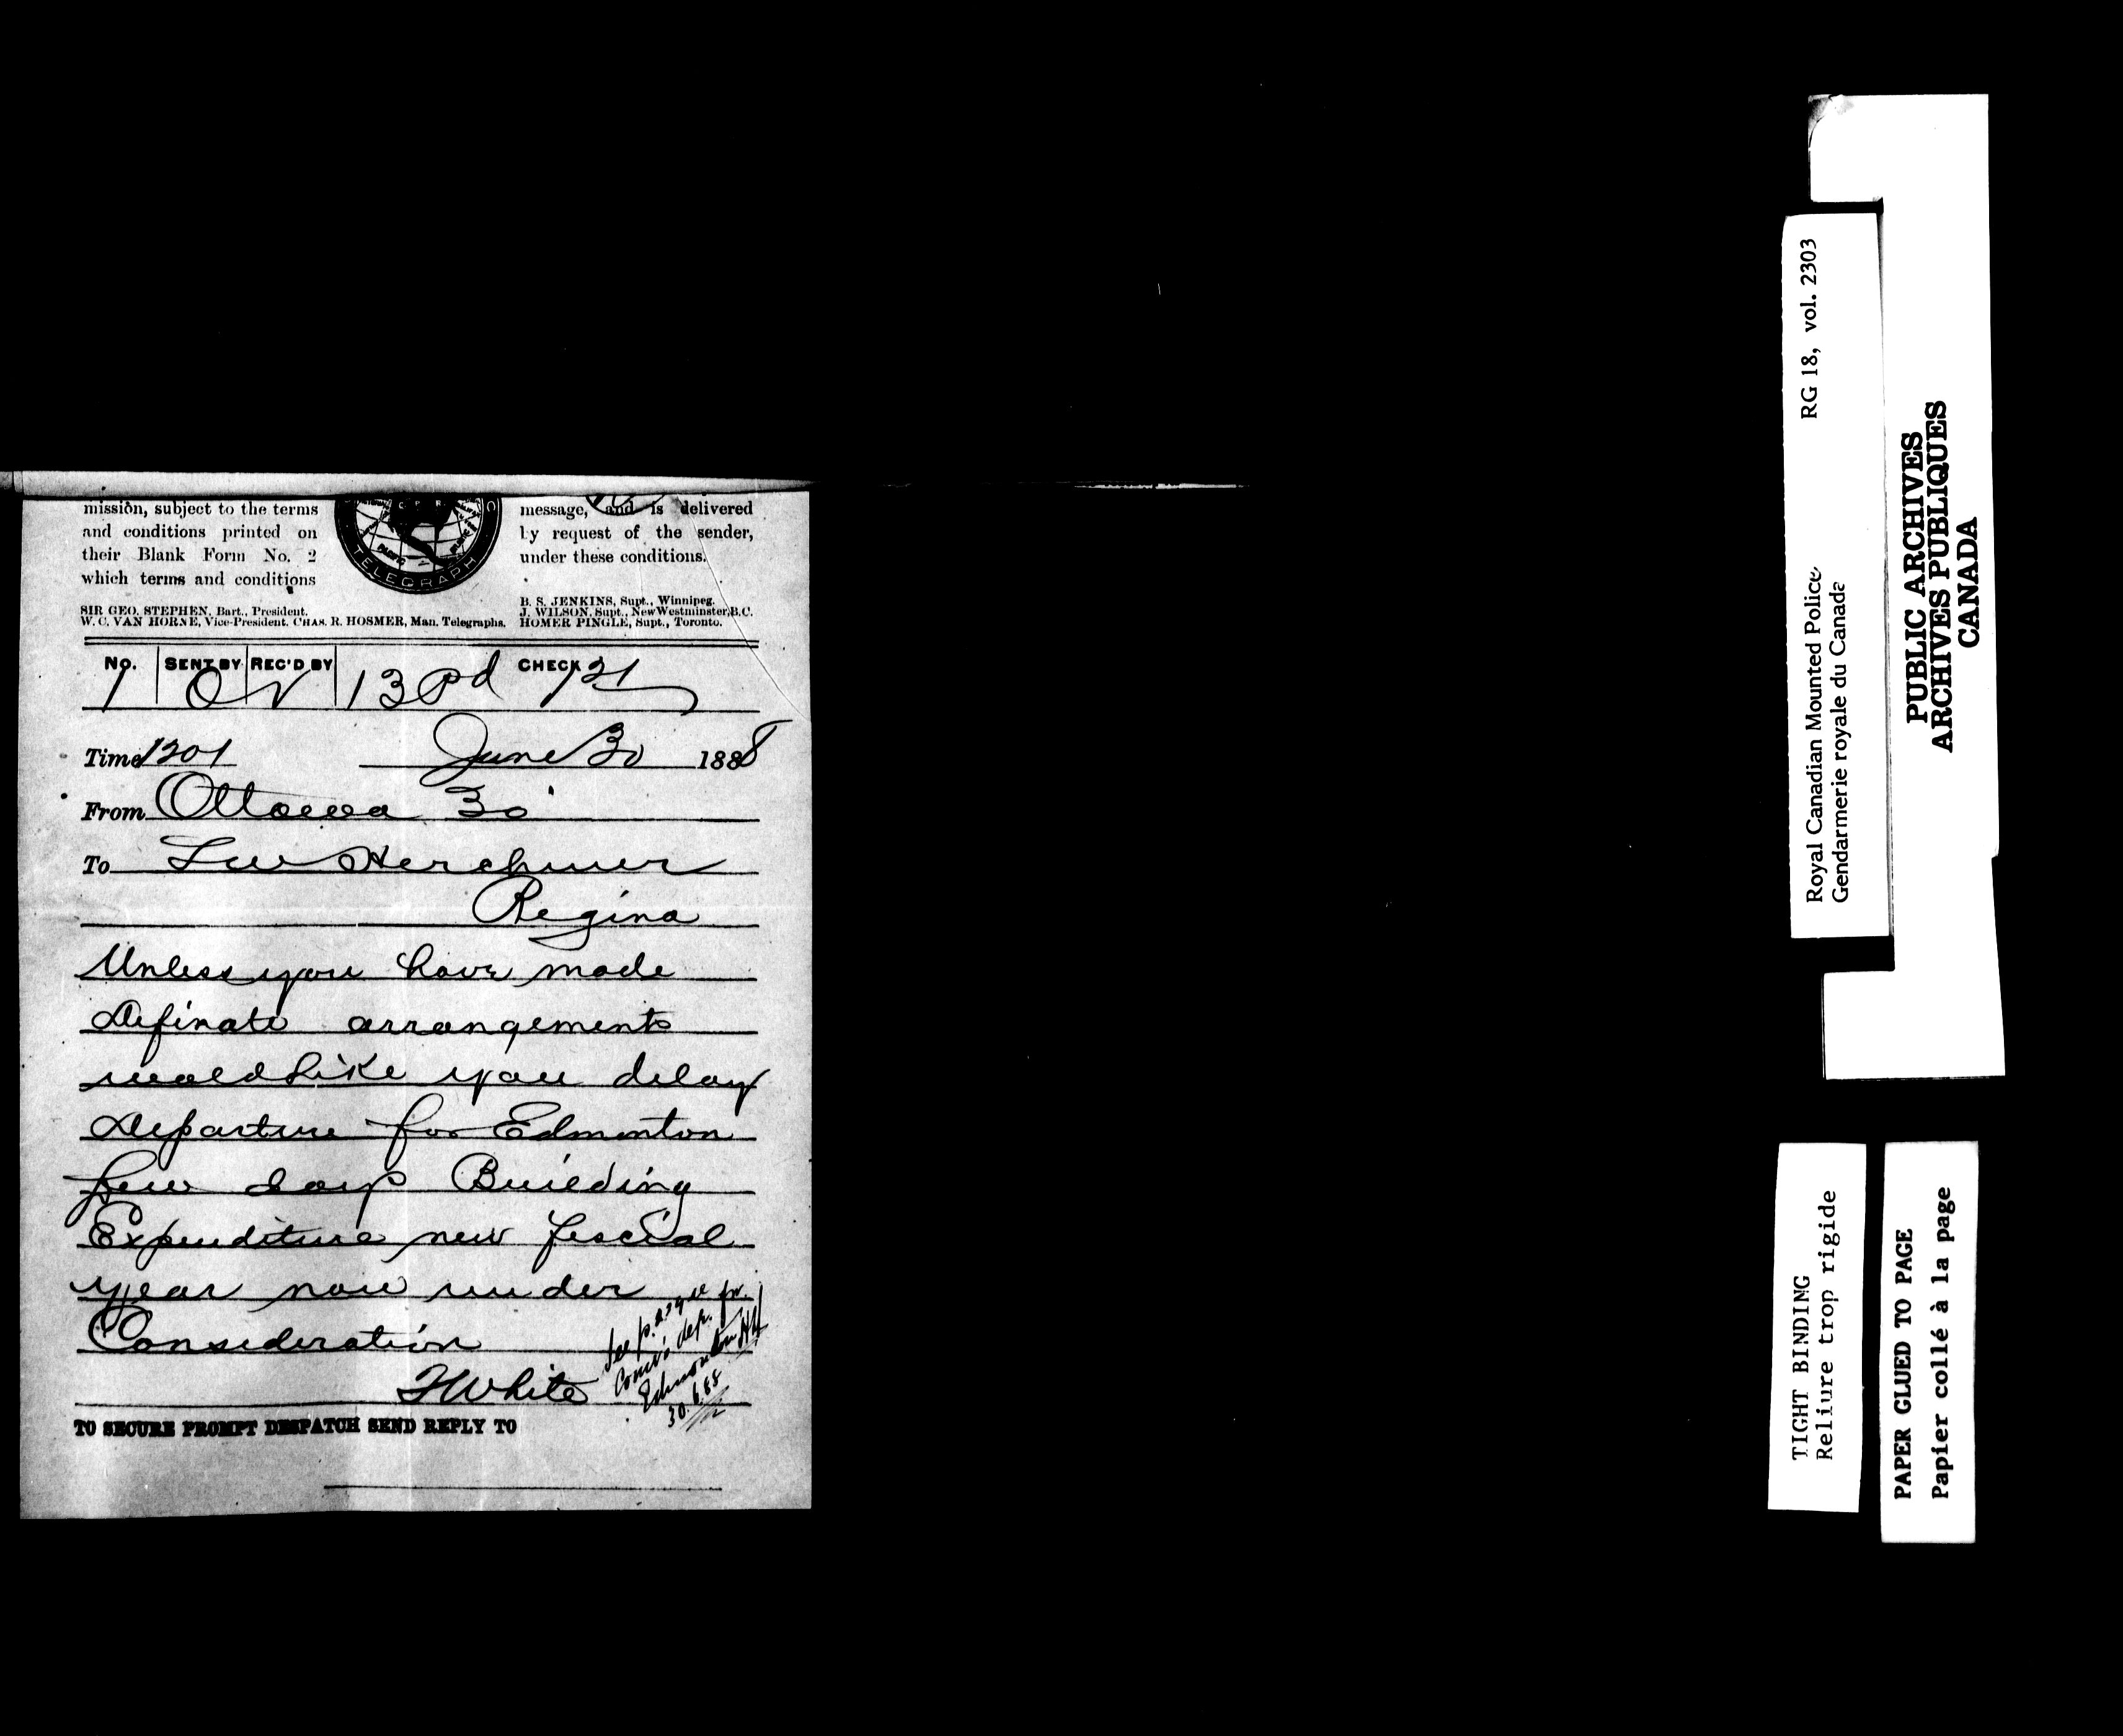 mission, subject to the terms
and conditions printed on
their Blank Form No. 2
which terms and conditions
TELEGRAPH
message, and is delivered
by request of the sender,
under these conditions.
SIR GEO. STEPHEN, Bart., President.
W. C. VAN HORNE, Vice-President. CHAS. R. HOSMER, Man. Telegraphs.
B. S. JENKINS, Supt., Winnipeg.
J. WILSON, Supt., New Westminster, B.C.
HOMER PINGLE, Supt., Toronto.
No. SENT BY REC'D BY CHECK
1 13 Pd 21
Time 1201 June 30 1888
From Ottawa 30
To Herchmer
Regina
Unless you have made
Definate arrangements
would like you delay
Departure for Edmonton
few days Building
Expenditure new fiscial
year now under
Consideration
F White
See p.
Edmonton
30.6.88
TO SECURE PROMPT DESPATCH SEND REPLY TO
Royal Canadian Mounted Police RG 18, vol. 2303
Gendarmerie royale du Canada
PUBLIC ARCHIVES
ARCHIVES PUBLIQUES
CANADA
TIGHT BINDING
Reliure trop rigide
PAPER GLUED TO PAGE
Papier collé à la page